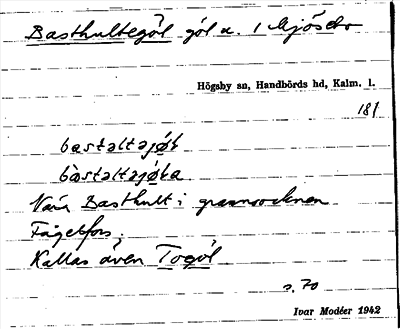 Basthultegöl göl n. / Mjösebo
Högsby sn, Handbörds hd, Kalm. l.
181
bastaltajø̀l
bàstaltajøla
Nära Basthult i grannsocknen
Fågelfors.
Kallas även Togöl
s. 70
Ivar Modéer 1942